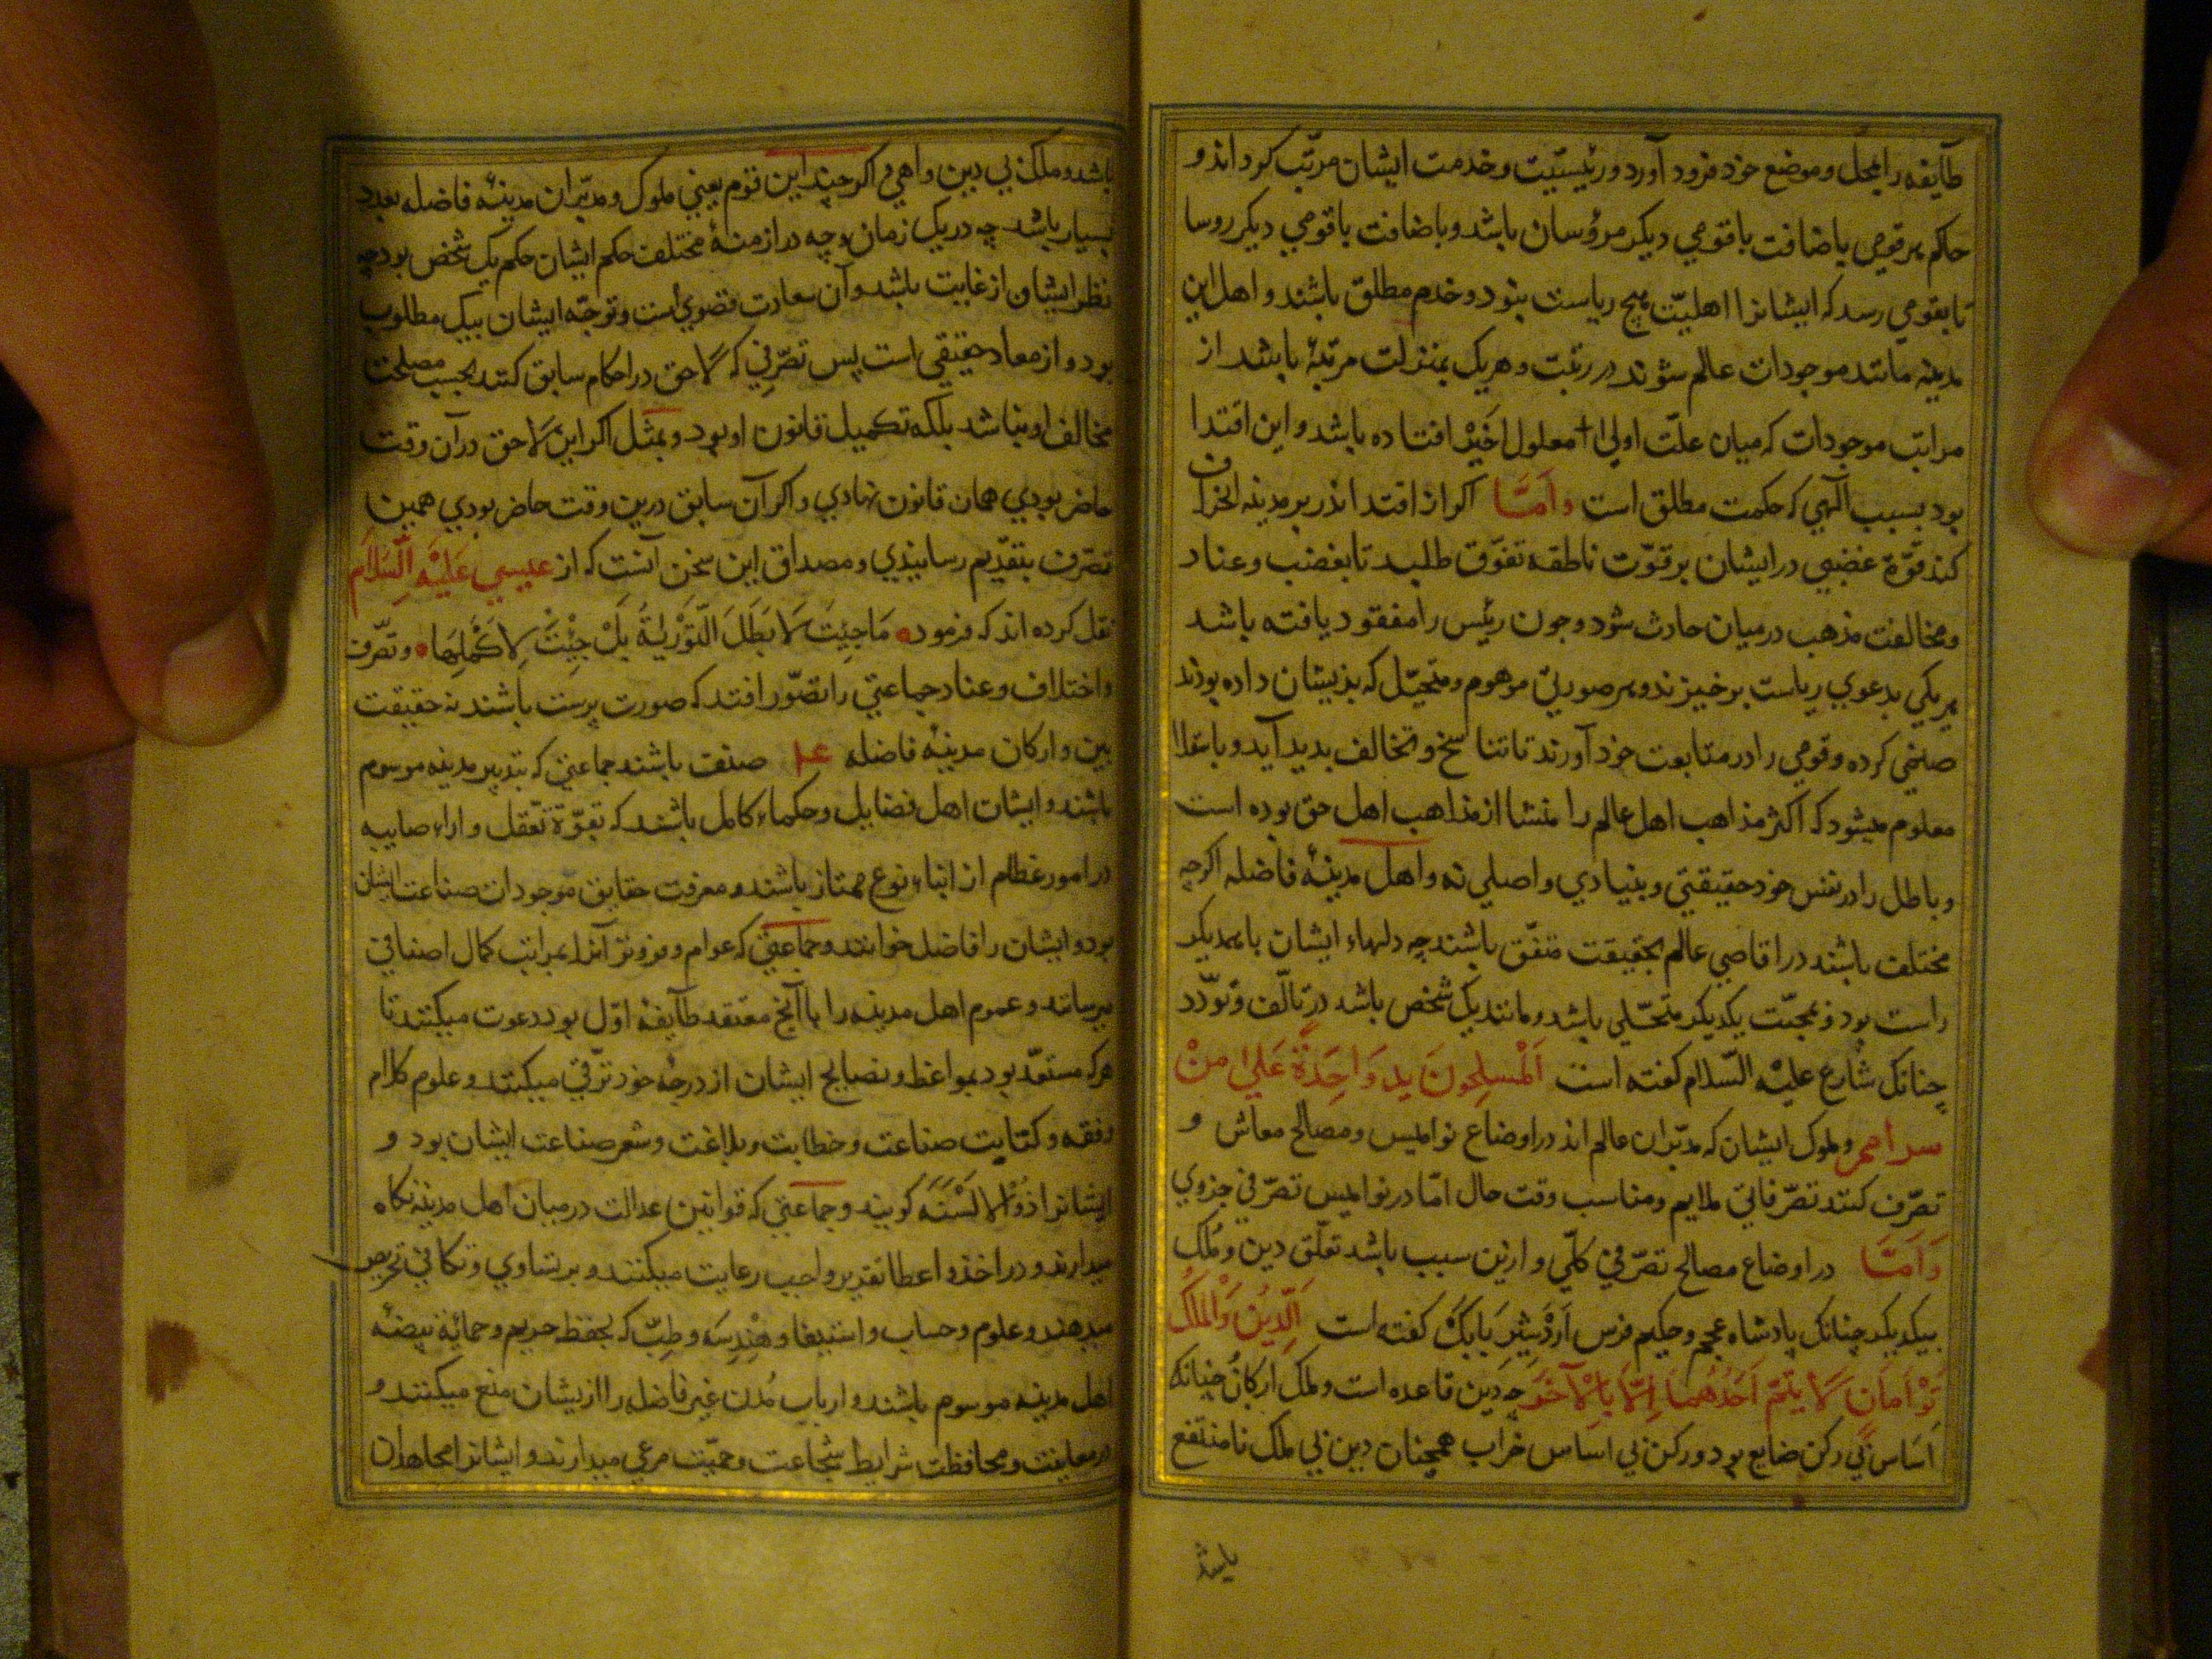 طایفه را بمحل وموضع خود فرود آورد ورئیسیّت وخدمت ایشان مرتّب کرداند و
حاکم هر قومی باضافت باقومی دیکر مرؤسان باشد وباضافت باقومی دیکر روسا
تا بقومی رسد که ایشانرا اهلیّت هیچ ریاست بنود وخدم مطلق باشند و اهل این
مدینه مانند موجودات عالم شوند در رتبت وهریک بمنزلت مرتبهٔ باشد از
مراتب موجودات که میان علّت اولی تا معلول اخیر افتاده باشد و این اقتدا
بود بسبب الٓهی که حکمت مطلق است وامّا اکر از اقتدا بذر بر مدینه الخراف
کند قوّة غضبی در ایشان بر قوّت ناطقه تفوّق طلبد تا بغضب وعناد
ومخالفت مذهب درمیان حادث شود وجون رئیس را مفقود یافته باشد
هریکی بدعوی ریاست برخیزند وهر صورتی موهوم ومتخیّل که بذیشان داده بودند
صنمی کرده وقومی را در متابعت خود آورند تا تناسخ وتخالف بدید آید وباستقرا
معلوم میشود که اکثر مذاهب اهل عالم را منشا از مذاهب اهل حق بوده است
وباطل را در نفس خود حقیقتی وبنیادی و اصلی نه واهل مدینهٔ فاضله اکرچه
مختلف باشند در اقاصی عالم بحقیقت متفّق باشند چه دلهاء ایشان با همدیکر
راست بود وبمحبّت یکدیکر متحّلی باشد ومانند یک شخص باشد در تالّف وتودّد
چنانک شارع علیه السّلام کفته است اَلْمُسلِمونَ یدٌ وَاحِدَةٌ عَلیٰ مَنْ
سواهم وملوک ایشان که مدبّران عالم اند در اوضاع نوامیس ومصالح معاش و
تصرّف کنند تصرّفاتی ملایم ومناسب وقت حال امّا در نوامیس تصرّفی جزوی
وَاَمّا در اوضاع مصالح تصرّفی کلّی و ازین سبب باشد تعلّق دین ومُلک
بیکدیکر چنانک پادشاه عجم وحکیم فرس اَرْدَشیَر بَابَک کفته است اَلّدینُ وَالْملکُ
تَوْاَمَانِ لَا یتَمُّ اَحَدُهُمَا اِلّا بِالْآخَر چه دین قاعده است وملک ارکان چنانکه
اَسَاس بی رکن ضایع بود ورکن بی اساس خراب همچنان دین بی ملک نامنتفع
باشد
باشد وملک بی دین واهی و اکرچند این قوم یعنی ملوک ومدبّران مدینهٔ فاضله بعدد
بسیار باشد چه در یک زمان وچه در ازمنهٔ مختلف حکم ایشان حکم یک شخص بود چه
نظر ایشان از غایت باشد وآن سعادت قصوی است وتوجّه ایشان بیک مطلوب
بود و از معاد حقیقی است پس تصرّفی که لاحق در احکام سابق کند بحسب مصلحت
مخالف او نباشد بلکه تکمیل قانون او بود وبمثل اکر این لاحق در آن وقت
حاضر بودی همان قانون نهادی و اکر آن سابق درین وقت حاضر بودی همین
تصّرف بتقدیم رسانیذی ومصداق این سخن آنست که از عیسی عَلَیْهِ الّسَلاَم
نقل کرده اند که فرمود مَا جِئِتَ لَا بَطَلَ الّتوْریٰةُ بَلْ جِئِتَ لِاکَمّلِهَا وتصّرف
واختلاف وعناد جماعتی را تصّور افتد که صورت پرست باشند نه حقیقت
بین و ارکان مدینهٔ فاضله صنف باشند جماعتی که بتدبیر مدینه موسوم
باشند و ایشان اهل فضایل وحکماء کامل باشند که بقوّة تعّقل و اراء صایبه
در امور عظام از ابناء نوع ممتاز باشند ومعرفت حقایق موجودات صناعت ایشان
بود وایشان را فاضل خوانند وجماعتی که عوام وفروتر آنرا بمراتب کمال اضافی
میرسانند وعموم اهل مدینه را باآنج معتقد طایفهٔ اوّل بود دعوت میکنند تا
هرکه مستعّد بود بمواعظ ونصایح ایشان از درجهٔ خود ترّقی میکند وعلوم کلام
وفقه وکتابت صناعت وخطابت وبلاغت وشعر صناعت ایشان بود و
ایشانرا ذُوْا الالسَنَه کویند وجماعتی که قوانین عدالت درمیان اهل مدینه نکاه
میدارند ودر اخذ و اعطا تقدیر واجب رعایت میکنند وبر تساوی وتکافی تحریص
میدهند وعلوم وحساب واستیفا وهِنْدِسَه وطِبّ که بحفظ حریم وحمایة بیضهٔ
اهل مدینه موسوم باشند وارباب مُدن غیر فاضله را ازیشان منع میکنند و
در معاینت ومحافظت شرایط شجاعت وحمیّت مرعی میدارند وایشانرا مجاهدان